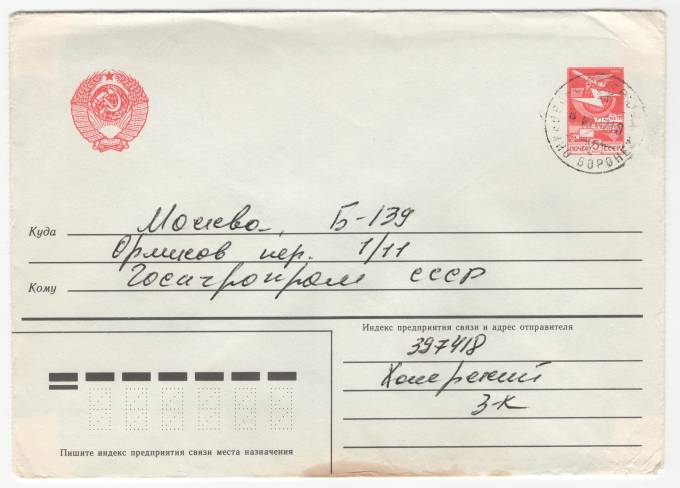 ПОЧТА 5к СССР
ВОРОНЕЖ
Куда Москва, Б-139
Орликов пер. 1/11
Кому Госагропром СССР
Индекс предприятия связи и адрес отправителя
397418
Хоперский
З-К
Пишите индекс предприятия связи места назначения